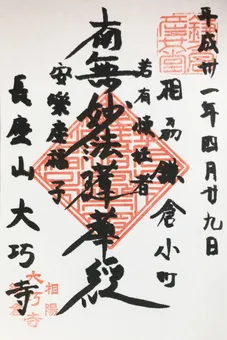 平成卅一年四月廿九日
相刕鎌倉小町
若有懐妊者
南無妙法蓮華経
安樂産福子
長慶山大巧寺
相陽
大巧寺